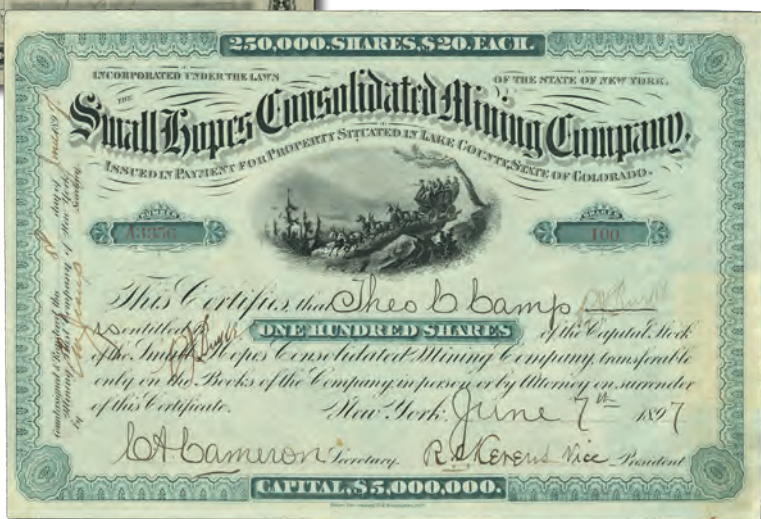 250,000.SHARES,$20.EACH.
INCORPORATED UNDER THE LAWS OF THE STATE OF NEW YORK.
THE
Small Hopes Consolidated Mining Company.
ISSUED IN PAYMENT FOR PROPERTY SITUATED IN LAKE COUNTY, STATE OF COLORADO.
NUMBER SHARES
A3356 100
This Certifies, that Theo C Camp
is entitled to ONE HUNDRED SHARES of the Capital Stock
of the Small Hopes Consolidated Mining Company, transferable
only on the Books of the Company in person or by Attorney on surrender
of this Certificate. New York, June 7th 1897
C A Cameron Secretary. R. C. Kerens Vice President
CAPITAL, $5,000,000.
Countersigned & Registered this 8 day of June 1897
Mining Trust Company of New York
by